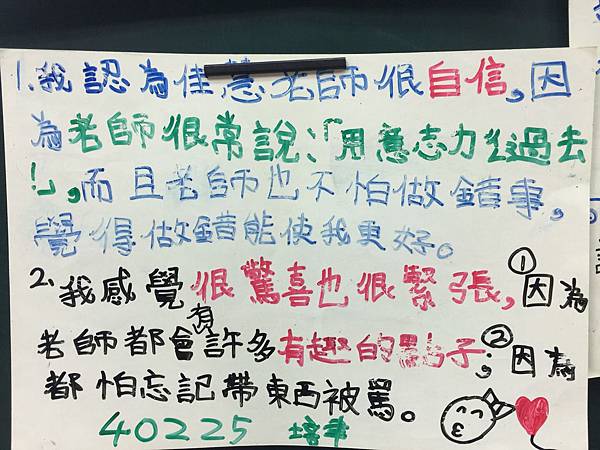 1.我認為佳慧老師很自信,因
為老師很常說:「用意志力徔過去
!」,而且老師也不怕做錯事,
覺得做錯能使我更好。
2.我感覺很驚喜也很緊張,①因為
老師都會有許多有趣的點子;②因為
都怕忘記帶東西被罵。
40225 培聿